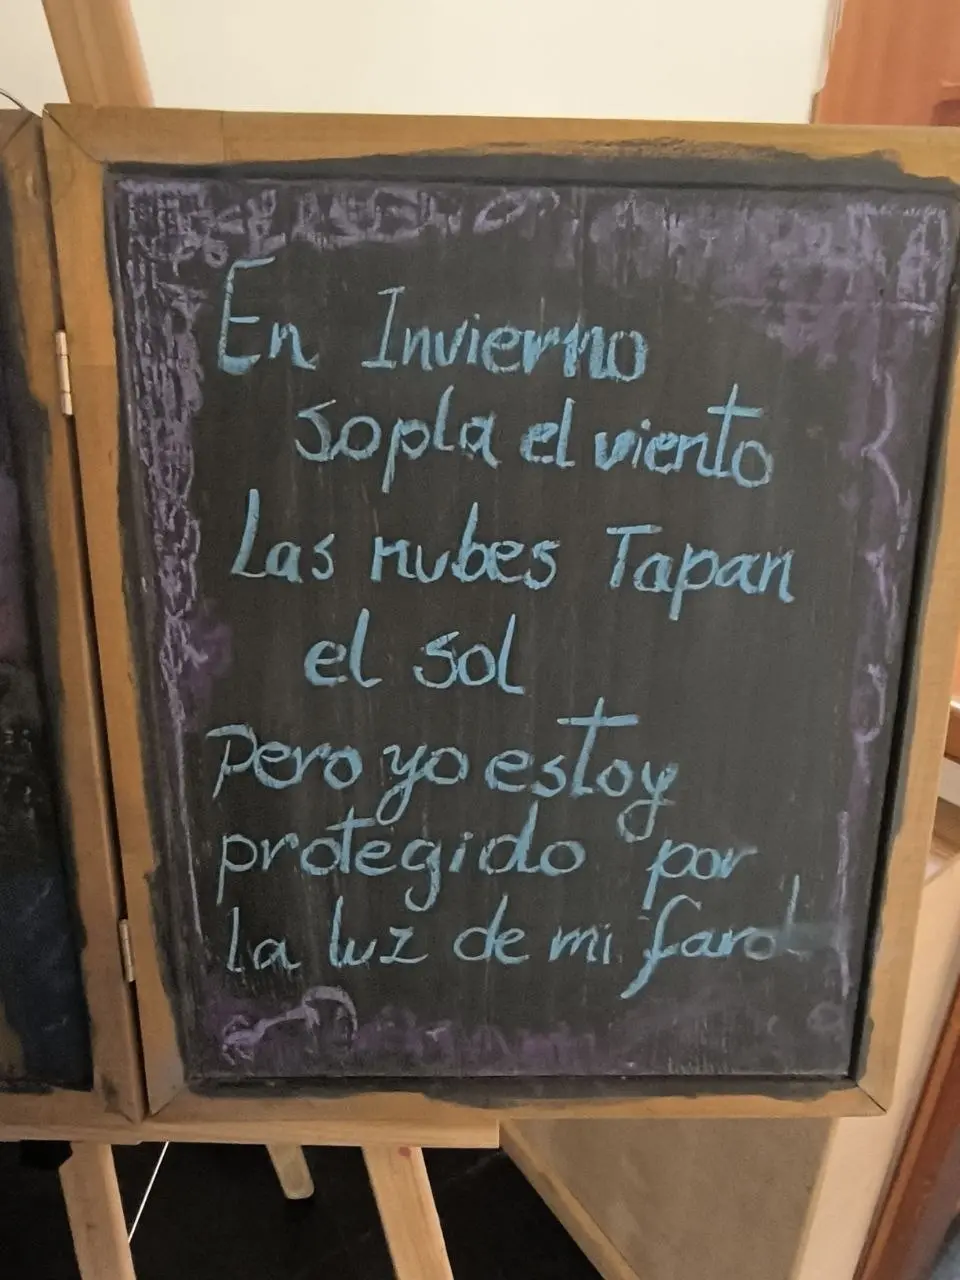 En Invierno
sopla el viento
Las nubes Tapan
el sol
Pero yo estoy
protegido por
la luz de mi farol